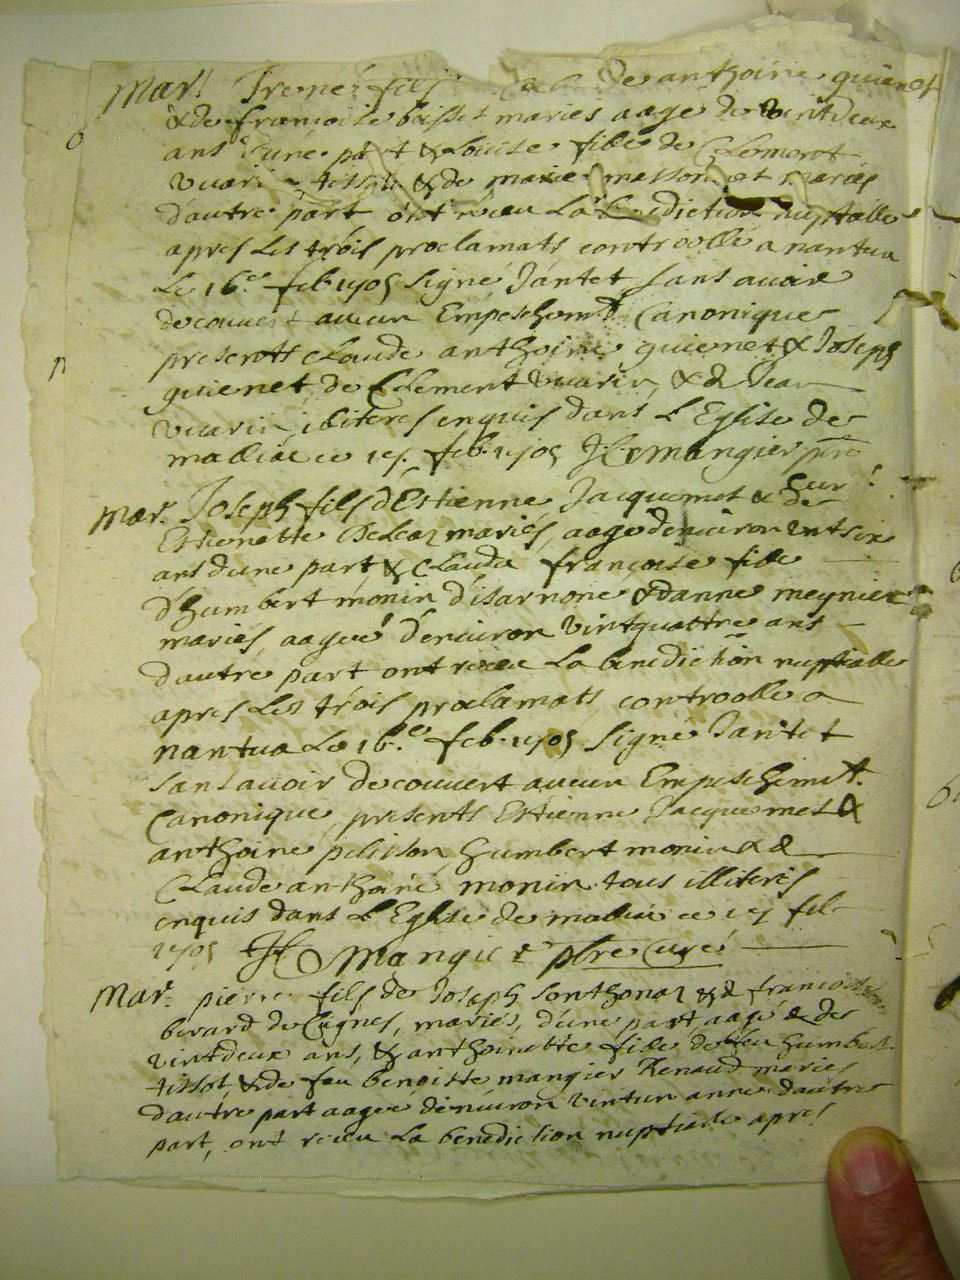 Mar. Irené fils de anthoine quienet
& de francoise boisset maries aagé de vintdeux
ans d'une part & Louise fille de Clemont
vuarin tissot & de marie masson et mariés
d'autre part ont receu La benediction nuptialle
apres Les trois proclamats controollé a nantua
Le 16.e feb. 1705 signé Jantet sans auoir
decouuert aucun Empeschemt Canonique
presents Claude anthoine quienet & Joseph
quienet de Clement vuarin & de Jean
vuarin iliteres enquis dans L'Eglise de
mallia ce 17. feb. 1705 Mangier ptre
Curé
Mar. Joseph fils d'Estienne Jacquemet & de
Estienette mariés, aagé d'enuiron vintsix
ans d'une part & Clauda françoise fille
d'humbert monin d'isarnore & d'anne meynier
mariés, aageé d'enuiron vintquattre ans
d'autre part ont receu La benediction nuptialle
apres Les trois proclamats controolle a
nantua Le 16.e feb. 1705 signé Jantet
sans auoir decouuert aucun Empeschemt.
Canonique, presents Estienne Jacquemet &
anthoine pelisson humbert monin & de
Claude anthoine monin tous illiteres
enquis dans L'Eglise de mallia ce 17 feb
1705 Mangier ptre Curé
Mar. pierre fils de Joseph Sonthonaz & de francoise
berard de Ciignes, mariés, d'une part aagé de
vintdeux ans, & anthoinette fille de feu humbert
tissot, & de feu benoitte mangier Renaud mariés
d'autre part aageé d'enuiron vintun annés d'autre
part, ont receu La benediction nuptialle apres